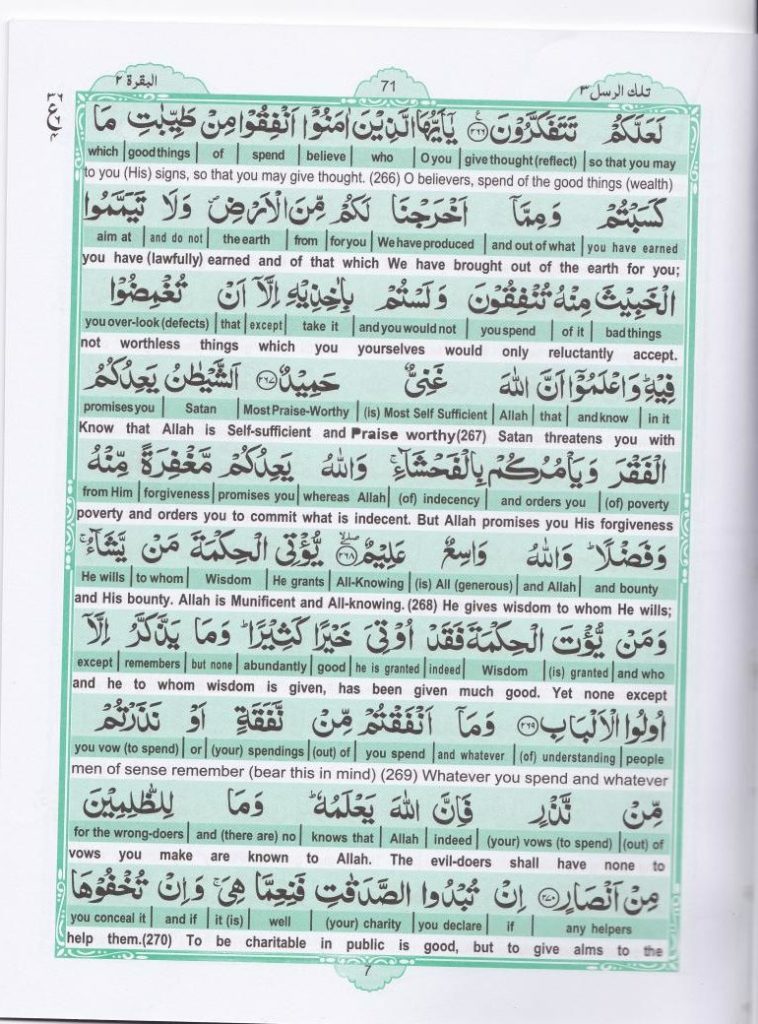 البقرة ٢
71
تلك الرسل ٣
لَعَلَّكُمْ تَتَفَكَّرُوْنَ ۝٢٦٦ يٰۤاَيُّهَا الَّذِيْنَ اٰمَنُوْۤا اَنْفِقُوْا مِنْ طَيِّبٰتِ مَا
which | good things | of | spend | believe | who | O you | give thought (reflect) | so that you may
to you (His) signs, so that you may give thought. (266) O believers, spend of the good things (wealth)
كَسَبْتُمْ وَمِمَّاۤ اَخْرَجْنَا لَكُمْ مِّنَ الْاَرْضِ ۪ وَلَا تَيَمَّمُوا
aim at | and do not | the earth | from | for you | We have produced | and out of what | you have earned
you have (lawfully) earned and of that which We have brought out of the earth for you;
الْخَبِيْثَ مِنْهُ تُنْفِقُوْنَ وَلَسْتُمْ بِاٰخِذِيْهِ اِلَّاۤ اَنْ تُغْمِضُوْا
you over-look (defects) | that | except | take it | and you would not | you spend | of it | bad things
not worthless things which you yourselves would only reluctantly accept.
فِيْهِ ؕ وَاعْلَمُوْۤا اَنَّ اللّٰهَ غَنِيٌّ حَمِيْدٌ ۝٢٦٧ اَلشَّيْطٰنُ يَعِدُكُمُ
promises you | Satan | Most Praise-Worthy | (is) Most Self Sufficient | Allah | that | and know | in it
Know that Allah is Self-sufficient and Praise worthy(267) Satan threatens you with
الْفَقْرَ وَيَاْمُرُكُمْ بِالْفَحْشَآءِ ۚ وَاللّٰهُ يَعِدُكُمْ مَّغْفِرَةً مِّنْهُ
from Him | forgiveness | promises you | whereas Allah | (of) indecency | and orders you | (of) poverty
poverty and orders you to commit what is indecent. But Allah promises you His forgiveness
وَفَضْلًا ؕ وَاللّٰهُ وَاسِعٌ عَلِيْمٌ ۝٢٦٨ يُّؤْتِى الْحِكْمَةَ مَنْ يَّشَآءُ ۚ
He wills | to whom | Wisdom | He grants | All-Knowing | (is) All (generous) | and Allah | and bounty
and His bounty. Allah is Munificent and All-knowing. (268) He gives wisdom to whom He wills;
وَمَنْ يُّؤْتَ الْحِكْمَةَ فَقَدْ اُوْتِىَ خَيْرًا كَثِيْرًا ؕ وَمَا يَذَّكَّرُ اِلَّاۤ
except | remembers | but none | abundantly | good | he is granted | indeed | Wisdom | (is) granted | and who
and he to whom wisdom is given, has been given much good. Yet none except
اُولُوا الْاَلْبَابِ ۝٢٦٩ وَمَاۤ اَنْفَقْتُمْ مِّنْ نَّفَقَةٍ اَوْ نَذَرْتُمْ
you vow (to spend) | or | (your) spendings | (out) of | you spend | and whatever | (of) understanding | people
men of sense remember (bear this in mind) (269) Whatever you spend and whatever
مِّنْ نَّذْرٍ فَاِنَّ اللّٰهَ يَعْلَمُهٗ ؕ وَمَا لِلظّٰلِمِيْنَ
for the wrong-doers | and (there are) no | knows that | Allah | indeed | (your) vows (to spend) | (out) of
vows you make are known to Allah. The evil-doers shall have none to
مِنْ اَنْصَارٍ ۝٢٧٠ اِنْ تُبْدُوا الصَّدَقٰتِ فَنِعِمَّا هِىَ ۚ وَاِنْ تُخْفُوْهَا
you conceal it | and if | it (is) | well | (your) charity | you declare | if | any helpers
help them.(270) To be charitable in public is good, but to give alms to the
7